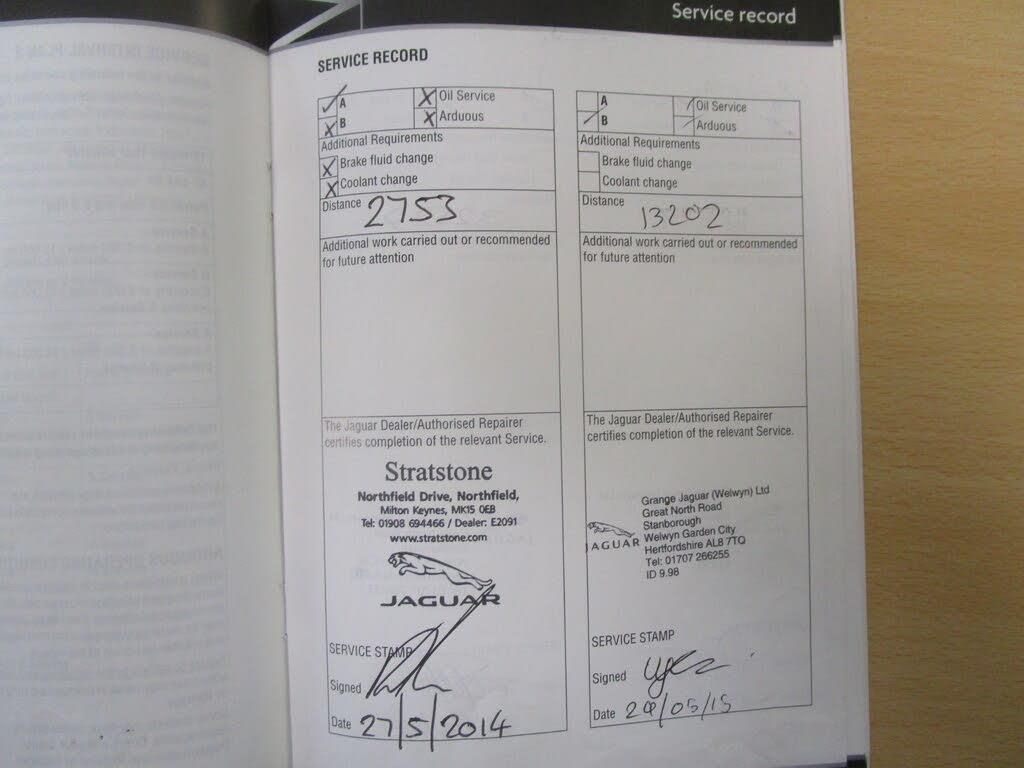 Service record
SERVICE RECORD
A
B
Oil Service
Arduous
Additional Requirements
Brake fluid change
Coolant change
Distance 2753
Additional work carried out or recommended
for future attention
The Jaguar Dealer/Authorised Repairer
certifies completion of the relevant Service.
Stratstone
Northfield Drive, Northfield,
Milton Keynes, MK15 0EB
Tel: 01908 694466 / Dealer: E2091
www.stratstone.com
JAGUAR
SERVICE STAMP
Signed
Date 27/5/2014
A
B
Oil Service
Arduous
Additional Requirements
Brake fluid change
Coolant change
Distance
13202
Additional work carried out or recommended
for future attention
The Jaguar Dealer/Authorised Repairer
certifies completion of the relevant Service.
JAGUAR
Grange Jaguar (Welwyn) Ltd
Great North Road
Stanborough
Welwyn Garden City
Hertfordshire AL8 7TQ
Tel: 01707 266255
ID 9.98
SERVICE STAMP
Signed
Date